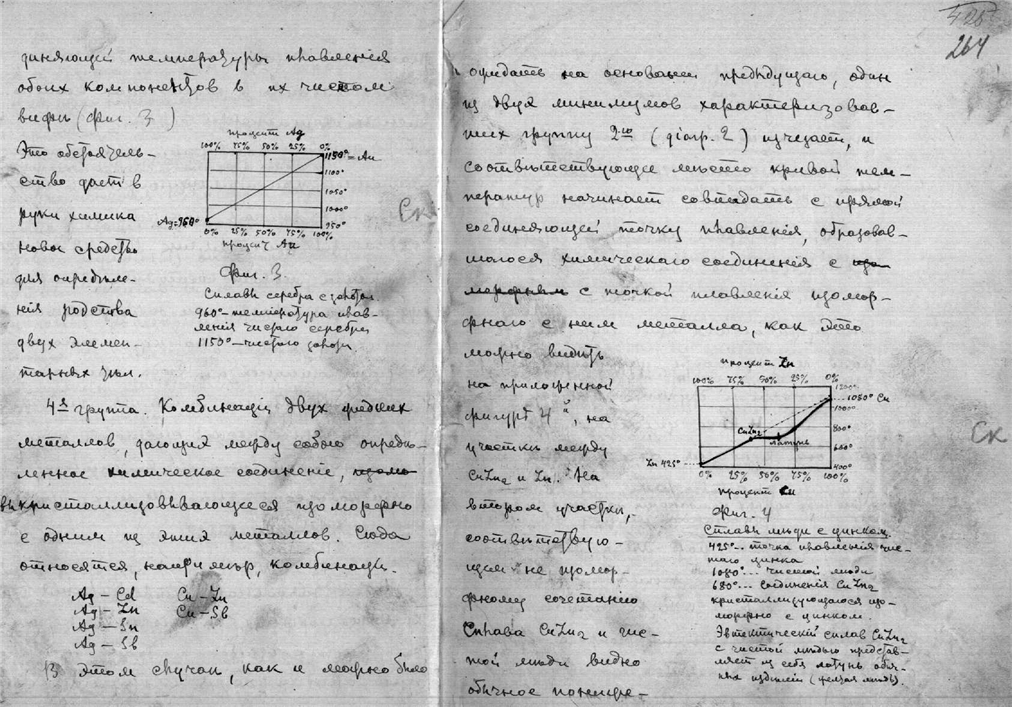 диняющей температуры плавленія
обоих компонентов в их чистом
виде (фиг. 3)
Это обстоятель-
ство дает в
руки химика
новое средство
для определе-
нія родства
двух элемен-
тарных
процент Ag
100% 75% 50% 25% 0%
1150° = Au
1100°
1050°
1000°
950°
Ag=960°
0% 25% 50% 75% 100%
процент Au
Фиг. 3.
Сплавы серебра с золотом.
960° – температура плав-
ленія чистого серебра
1150° – чистого золота.
4я группа. Комбинаціи двух
металлов, дающих между собою опреде-
ленное химическое соединеніе,
выкристаллизовывающееся изоморфно
с одним из этих металлов. Сюда
относятся, например, комбинаціи.
Ag – Cd Cu – Zn
Ag – Zn Cu – Sb
Ag – Sn
Ag – Sb
В этом случаи, как и можно было
Ск
426
264
ожидать на основаніи предыдущаго, один
из двух минимумов характеризовав-
ших группу 2ю (діагр. 2) изчезает, и
соответствующее место кривой тем-
ператур начинает совпадать с прямой
соединяющей точку плавленія, образовав-
шагося химическаго соединенія с
с точкой плавленія изомор-
фнаго с ним металла, как это
можно видеть
на приложенной
фигуре 4й, на
участке между
CuZn2 и Zn. На
втором участке,
соответствую-
щем не изомор-
фному сочетанію
сплава CuZn2 и чис-
той меди видно
обычное пониже-
процент Zn
100% 75% 50% 25% 0%
1200°
1080° Cu
1000°
800°
600°
400°
CuZn2
латунь
Zn 425°
0% 25% 50% 75% 100%
процент Cu
Фиг. 4
Сплавы меди с цинком.
425° – точка плавленія чис-
таго цинка
1080° – чистой меди
680° – соединенія CuZn2
кристаллизующагося изо-
морфно с цинком.
Эвтектический сплав CuZn2
с чистой медью представ-
ляет из себя латунь обыч-
ных изделій (желтая медь).
Ск